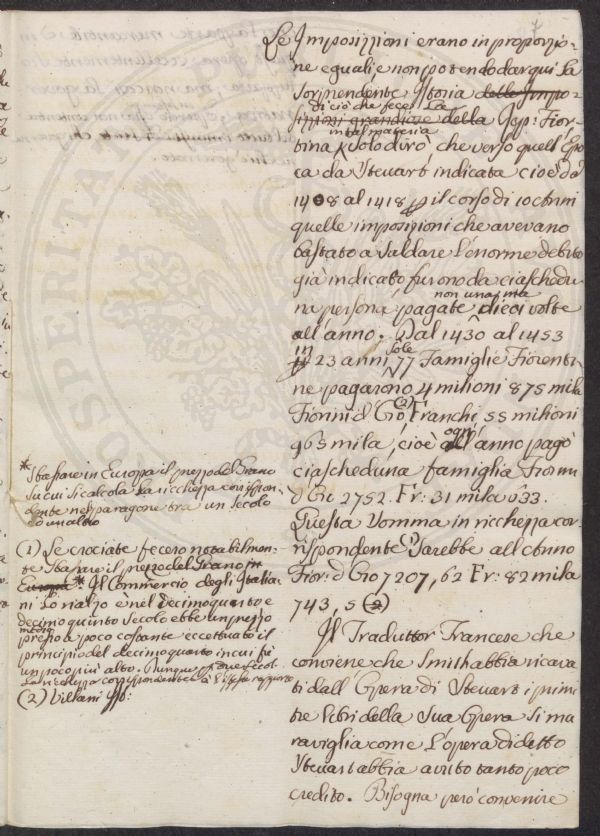 Le Imposizioni erano in proporzio-
ne eguali, e non potendo dar qui la
Sorprendente Istoria delle Impo-
di ciò che fece La
sizzioni grandiose della Rep: Fior-
in tal materia
tina solo dirò che verso quell' Epo
ca da Steuart indicata cioè dà
1408 al 1418 il corso di 10 anni
quelle imposizioni che avevano
bastato a Saldare L'enorme debito
già indicato furono da ciaschedu
non una, ma
na persona pagate dieci volte
all'anno. Dal 1430 al 1453
in 23 anni Sole 77 Famiglie Fiorenti
ne pagarono 4 milioni 875 mila
Fiorini d'Oro (2) Franchi 55 milioni
963 mila, cioè ogni all'anno pagò
ciascheduna famiglia Fiorini
d'Oro 2752. Fr: 31 mila 633.
Questa Somma in ricchezza cor
rispondente (1) Sarebbe all'Anno
Fior: d'Oro 7207, 62 Fr: 82 mila
743, 5 (2)
Il Traduttor Francese che
conviene che Smith abbia ricava
ti dall'Opera di Steuart i primi
tre Libri della Sua Opera Si ma
raviglia come L'opera di detto
Steuart abbia avuto tanto poco
credito. Bisogna però convenire
* Sbassare in Europa il prezzo del Grano
su cui Si calcola La ricchezza corrispon-
dente nel paragone tra un Secolo
ed un altro
(1) Le crociate fecero notabilmen-
te Sbassare il prezzo del Grano in
Europa * Il Commercio degl'Italia-
ni Lo rialzò e nel decimoquarto e
decimoquinto Secolo ebbe un prezzo
medio
presso a poco costante eccettuato il
principio del decimoquarto in cui fù
un poco più alto. Dunque due Secoli
La ricchezza corrispondente à l'istesso rapporto
(2) Villani